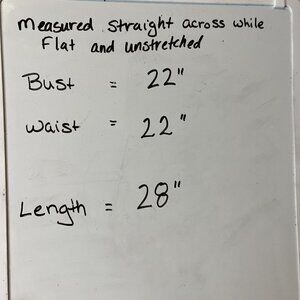 measured straight across while
flat and unstretched
Bust = 22"
waist = 22"
Length = 28"